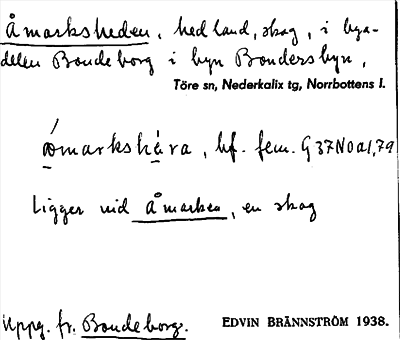 Åmarksheden, hedland, skog, i bya-
delen Bondeborg i byn Bondersbyn,
Töre sn, Nederkalix tg, Norrbottens l.
åmarkshɛra, bf. fem. G37N0a1,79
Ligger vid Åmarken, en skog
Uppg. fr. Bondeborg. EDVIN BRÄNNSTRÖM 1938.